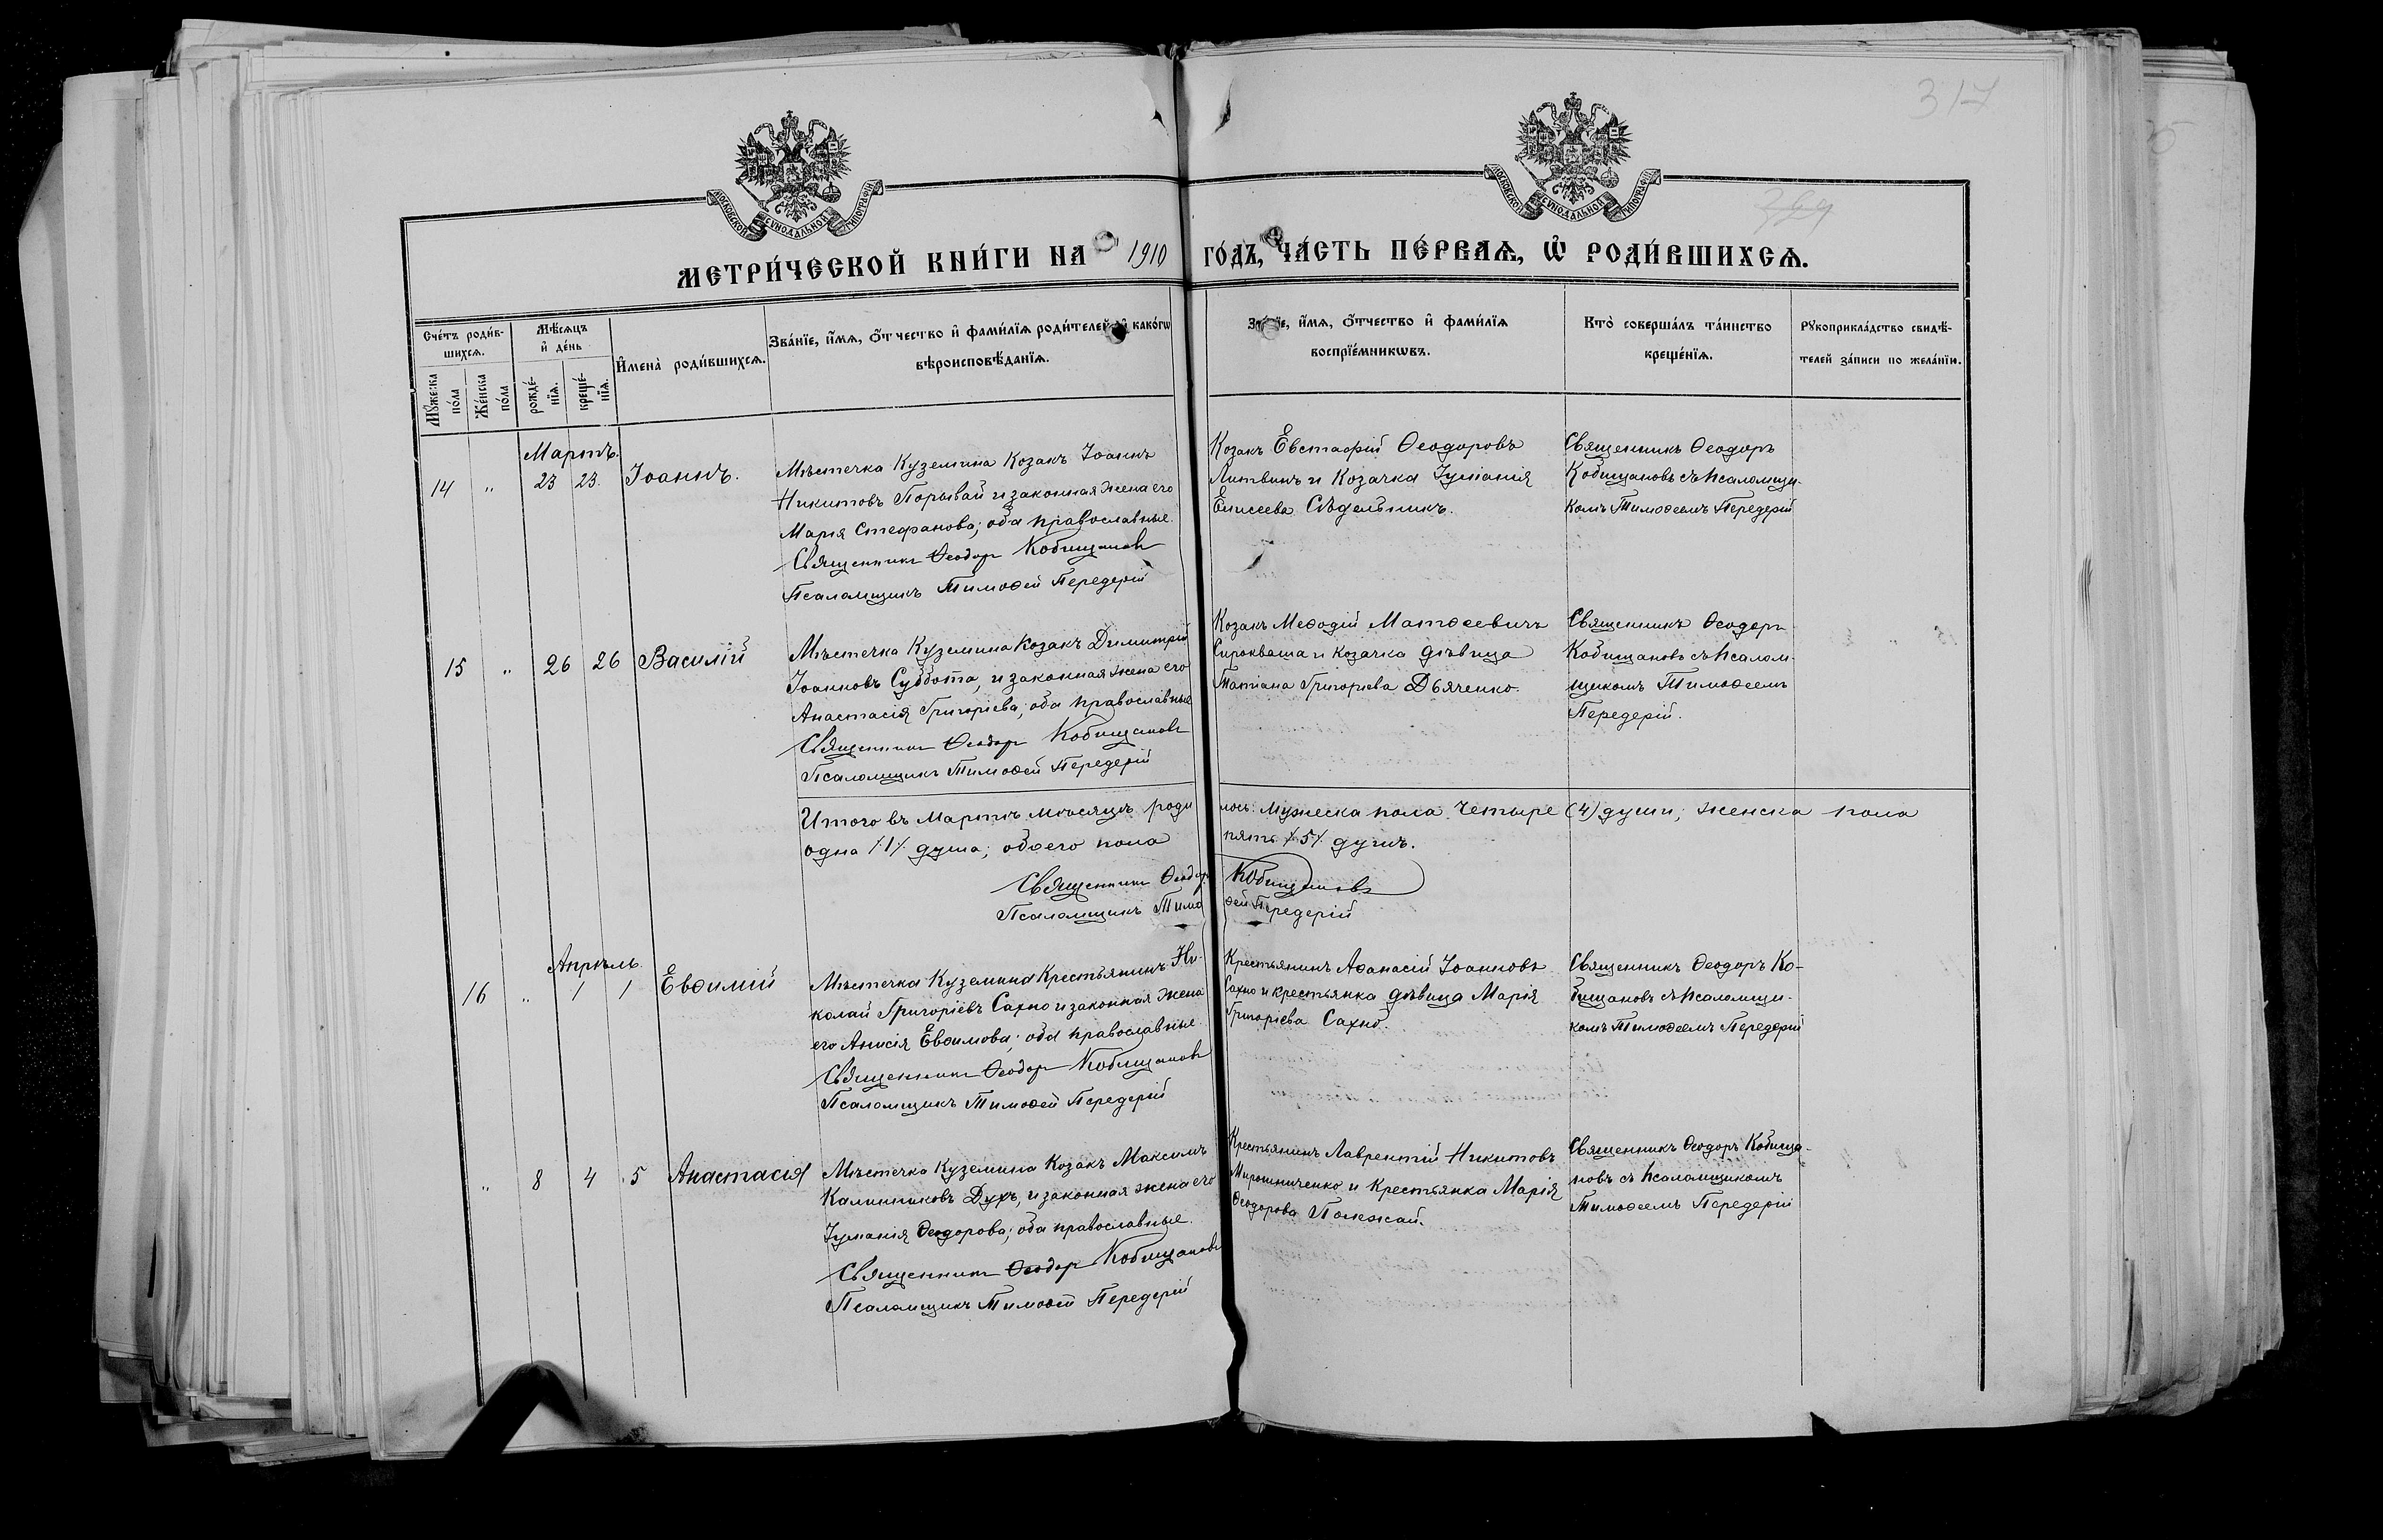 317
369
МОСКОВСКОЙ СУНОДАЛЬНОЙ ТИПОГРАФІИ
МОСКОВСКОЙ СУНОДАЛЬНОЙ ТИПОГРАФІИ
МЕТРИ́ЧЕСКОЙ КНИ́ГИ НА 1910 ГО́ДЪ, ЧА́СТЬ ПЕ́РВАѦ, Ѡ РОДИ́ВШИХСѦ.
Сче́тъ роди́в-
шихсѧ.
Мꙋ́жеска
по́ла
Же́нска
по́ла
Мѣ́сѧцъ
и҆ де́нь
рожде́-
нїѧ.
креще́-
нїѧ.
И҆мена̀ роди́вшихсѧ.
Зва́нїе, и҆́мѧ, о҆́тчество и҆ фами́лїѧ роди́телей, и҆ како́гѡ
вѣроисповѣ́данїѧ.
Зва́нїе, и҆́мѧ, о҆́тчество и҆ фами́лїѧ
воспрїе́мникѡвъ.
Кто̀ соверша́лъ та́инство
креще́нїѧ.
Рꙋкоприкла́дство свидѣ́-
телей за́писи по жела́нїю.
Мартъ.
14 " 23 23. Іоаннъ.
Мѣстечка Куземина Козакъ Іоаннъ
Никитовъ Порывай и законная жена его
Марія Стефанова; оба православные.
Священникъ Ѳеодоръ Кобищановъ
Псаломщикъ Тимоѳей Передерій
Козакъ Евстафій Ѳеодоровъ
Литвинъ и Козачка Іуліанія
Елисеева Сѣдельникъ.
Священникъ Ѳеодоръ
Кобищановъ съ Псаломщи-
комъ Тимоѳеемъ Передерій
15 " 26 26 Василій
Мѣстечка Куземина Козакъ Димитрій
Іоанновъ Суббота, и законная жена его
Анастасія Григоріева; оба православные
Священникъ Ѳеодоръ Кобищановъ
Псаломщикъ Тимоѳей Передерій
Козакъ Меѳодій Матѳеевичъ
Сирокваша и Козачка дѣвица
Татіана Григоріева Дьяченко.
Священникъ Ѳеодоръ
Кобищановъ съ Псалом-
щикомъ Тимоѳеемъ
Передерій.
Итого въ Мартѣ мѣсяцѣ роди лось: Мужеска пола четыре (4) души; женска пола
одна /1/ душа; обоего пола пять /5/ душъ.
Священникъ Ѳеодоръ Кобищановъ
Псаломщикъ Тимо ѳей Передерій
Апрѣль.
16 " 1 1 Евѳимій
Мѣстечка Куземина Крестьянинъ Ни-
колай Григоріевъ Сахно и законная жена
его Анисія Евѳимова; оба православные.
Священникъ Ѳеодоръ Кобищановъ
Псаломщикъ Тимоѳей Передерій
Крестьянинъ Аѳанасій Іоанновъ
Сахно и крестьянка дѣвица Марія
Григоріева Сахно.
Священникъ Ѳеодоръ Ко-
бищановъ съ Псаломщи-
комъ Тимоѳеемъ Передерій
" 8 4 5 Анастасія
Мѣстечка Куземина Козакъ Максимъ
Калинниковъ Духъ, и законная жена его
Іуліанія Ѳеодорова; оба православные.
Священникъ Ѳеодоръ Кобищановъ
Псаломщикъ Тимоѳей Передерій
Крестьянинъ Лаврентій Никитовъ
Мирошниченко и Крестьянка Марія
Ѳеодорова Полежай.
Священникъ Ѳеодоръ Кобища-
новъ съ Псаломщикомъ
Тимоѳеемъ Передерій